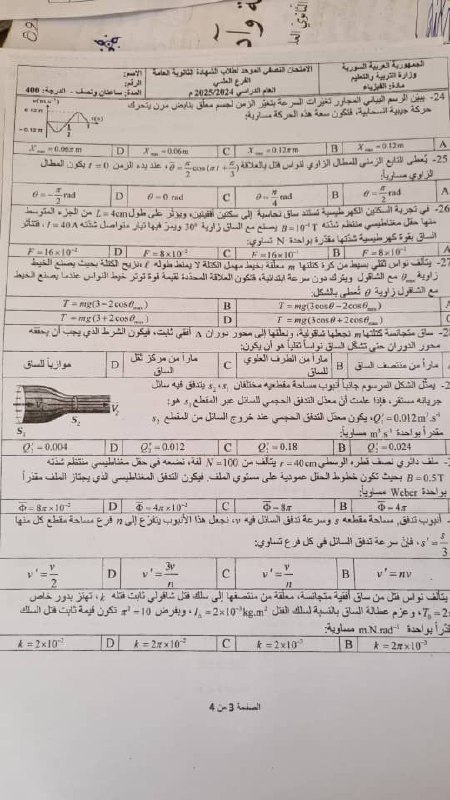 الجمهورية العربية السورية
وزارة التربية والتعليم
المادة: الفيزياء
الامتحان النصفي الموحد لطلاب الشهادة الثانوية العامة
الفرع العلمي
العام الدراسي 2025/2024 م
الاسم:
الرقم:
المدة: ساعتان ونصف - الدرجة: 400
24- يبين الرسم البياني المجاور تغيرات السرعة بتغير الزمن لجسم معلق بنابض مرن يتحرك
حركة جيبية انسحابية، فتكون سعة هذه الحركة مساوية:
A X max = 0.12 m B X max = 0.12π m C X max = 0.06 m D X max = 0.06π m
25- يُعطى التابع الزمني للمطال الزاوي لنواس فتل بالعلاقة
، عند بدء الزمن t = 0 يكون المطال
الزاوي مساوياً:
A θ = π/2 rad B θ = π/4 rad C θ = 0 rad D θ = -π/2 rad
26- في تجربة السكتين الكهرطيسية تستند ساق نحاسية إلى سكتين أفقيتين، ويؤثر على طول L = 4cm من الجزء المتوسط
منها حقل مغناطيسي منتظم شدته B = 10⁻¹ T يصنع مع الساق زاوية 30° ويمر فيها تيار متواصل شدته I = 40 A، فتتأثر
الساق بقوة كهرطيسية شدتها مقدرة بواحدة N تساوي:
27- يتألف نواس ثقلي بسيط من كرة كتلتها m معلقة بخيط مهمل الكتلة لا يمتط طوله ℓ، نزيح الكتلة بحيث يصنع الخيط
زاوية θmax مع الشاقول ويترك دون سرعة ابتدائية، فتكون العلاقة المحددة لقيمة قوة توتر خيط النواس عندما يصنع الخيط
مع الشاقول زاوية θ تُعطى بالشكل:
T = mg(3cosθ − 2cosθmax) B T = mg(3 − 2cosθmax)
T = mg(3cosθ + 2cosθmax) D T = mg(3 + 2cosθmax)
ساق متجانسة كتلتها m نجعلها شاقولية، ونعلقها إلى محور دوران Δ أفقي ثابت، فيكون الشرط الذي يجب أن يحققه
محور الدوران حتى تشكل الساق نواساً ثقلياً هو أن يكون:
A ماراً من منتصف الساق B ماراً من الطرف العلوي للساق C ماراً من مركز ثقل الساق D موازياً للساق
يمثل الشكل المرسوم جانباً أنبوب مساحة مقطعيه مختلفان s₁، s₂ يتدفق فيه سائل
جريانه مستقر، فإذا علمت أن معدل التدفق الحجمي للسائل عبر المقطع s₁ هو:
Q'₁ = 0.012 m³.s⁻¹، يكون معدل التدفق الحجمي عند خروج السائل من المقطع s₂
مقدراً بواحدة m³.s⁻¹ مساوياً:
Q'₂ = 0.024 B Q'₂ = 0.18 C Q'₂ = 0.012 D Q'₂ = 0.004
ملف دائري نصف قطره الوسطي r = 40 cm يتألف من N = 100 لفة، نضعه في حقل مغناطيسي منتظم شدته
B = 0.5 T بحيث تكون خطوط الحقل عمودية على مستوي الملف. فيكون التدفق المغناطيسي الذي يجتاز الملف مقدراً
بواحدة Weber مساوياً:
Φ = 4π B Φ = 8π C Φ = 4π×10⁻² D Φ = 8π×10⁻²
أنبوب تدفق، مساحة مقطعه s وسرعة تدفق السائل فيه v، نجعل هذا الأنبوب يتفرع إلى n فرع مساحة مقطع كل منها
s' = s/3، فإن سرعة تدفق السائل في كل فرع تساوي:
v' = nv B v' = v/n C v' = 3v/n D v' = v/2
يتألف نواس فتل من ساق أفقية متجانسة، معلقة من منتصفها إلى سلك فتل شاقولي ثابت فتله k، تهتز بدور خاص
، وعزم عطالة الساق بالنسبة لسلك الفتل I = 2×10⁻³ kg.m²، وبفرض π² = 10 تكون قيمة ثابت فتل السلك
مقدراً بواحدة m.N.rad⁻¹ مساوية:
k = 2π×10⁻³ B k = 2×10⁻³ C k = 2π×10⁻² D k = 2×10⁻²
الصفحة 3 من 4